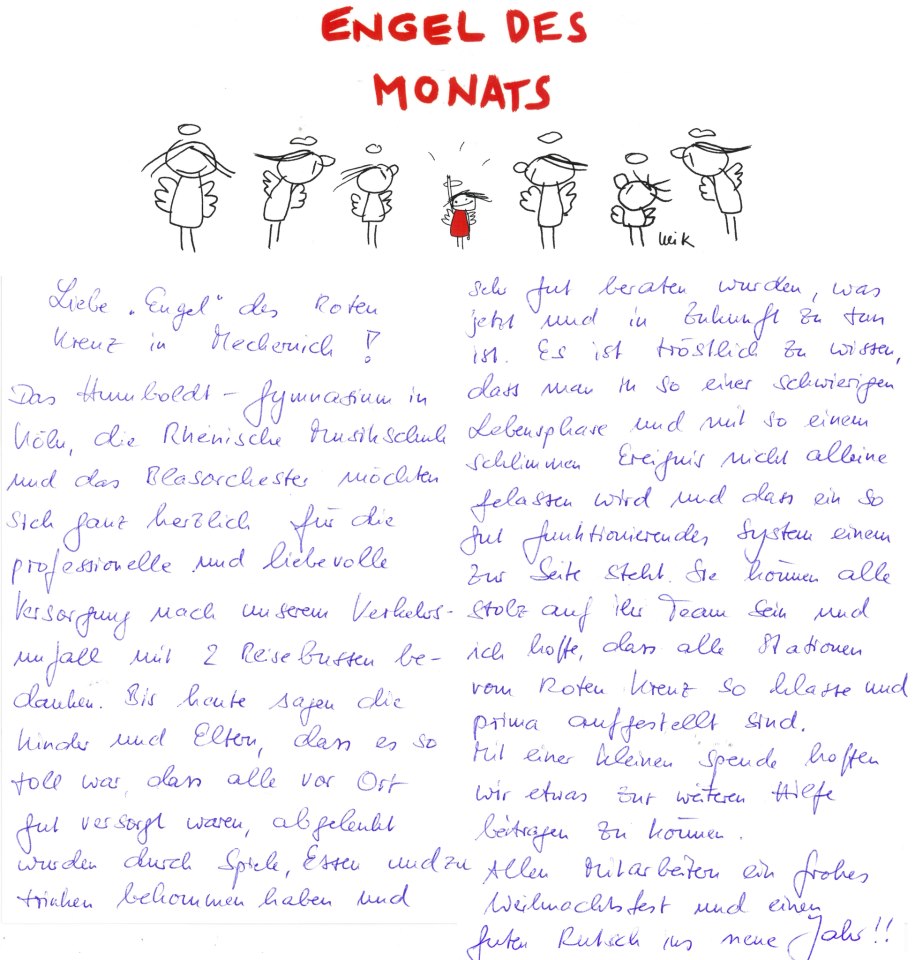 ENGEL DES
MONATS
Liebe „Engel" des Roten
Kreuz in Mechernich !
Das Humboldt - Gymnasium in
Köln, die Rheinische Musikschule
und das Blasorchester möchten
sich ganz herzlich für die
professionelle und liebevolle
Versorgung nach unserem Verkehrs-
unfall mit 2 Reisebussen be-
danken. Bis heute sagen die
Kinder und Eltern, dass es so
toll war, dass alle vor Ort
gut versorgt waren, abgelenkt
wurden durch Spiele, Essen und zu
trinken bekommen haben und
sehr gut beraten wurden, was
jetzt und in Zukunft zu tun
ist. Es ist tröstlich zu wissen,
dass man in so einer schwierigen
Lebensphase und mit so einem
schlimmen Ereignis nicht alleine
gelassen wird und dass ein so
gut funktionierendes System einem
zur Seite steht. Sie können alle
stolz auf ihr Team sein und
ich hoffe, dass alle Stationen
vom Roten Kreuz so klasse und
prima aufgestellt sind.
Mit einer kleinen Spende hoffen
wir etwas zur weiteren Hilfe
beitragen zu können.
Allen Mitarbeitern ein frohes
Weihnachtsfest und einen
guten Rutsch ins neue Jahr!!